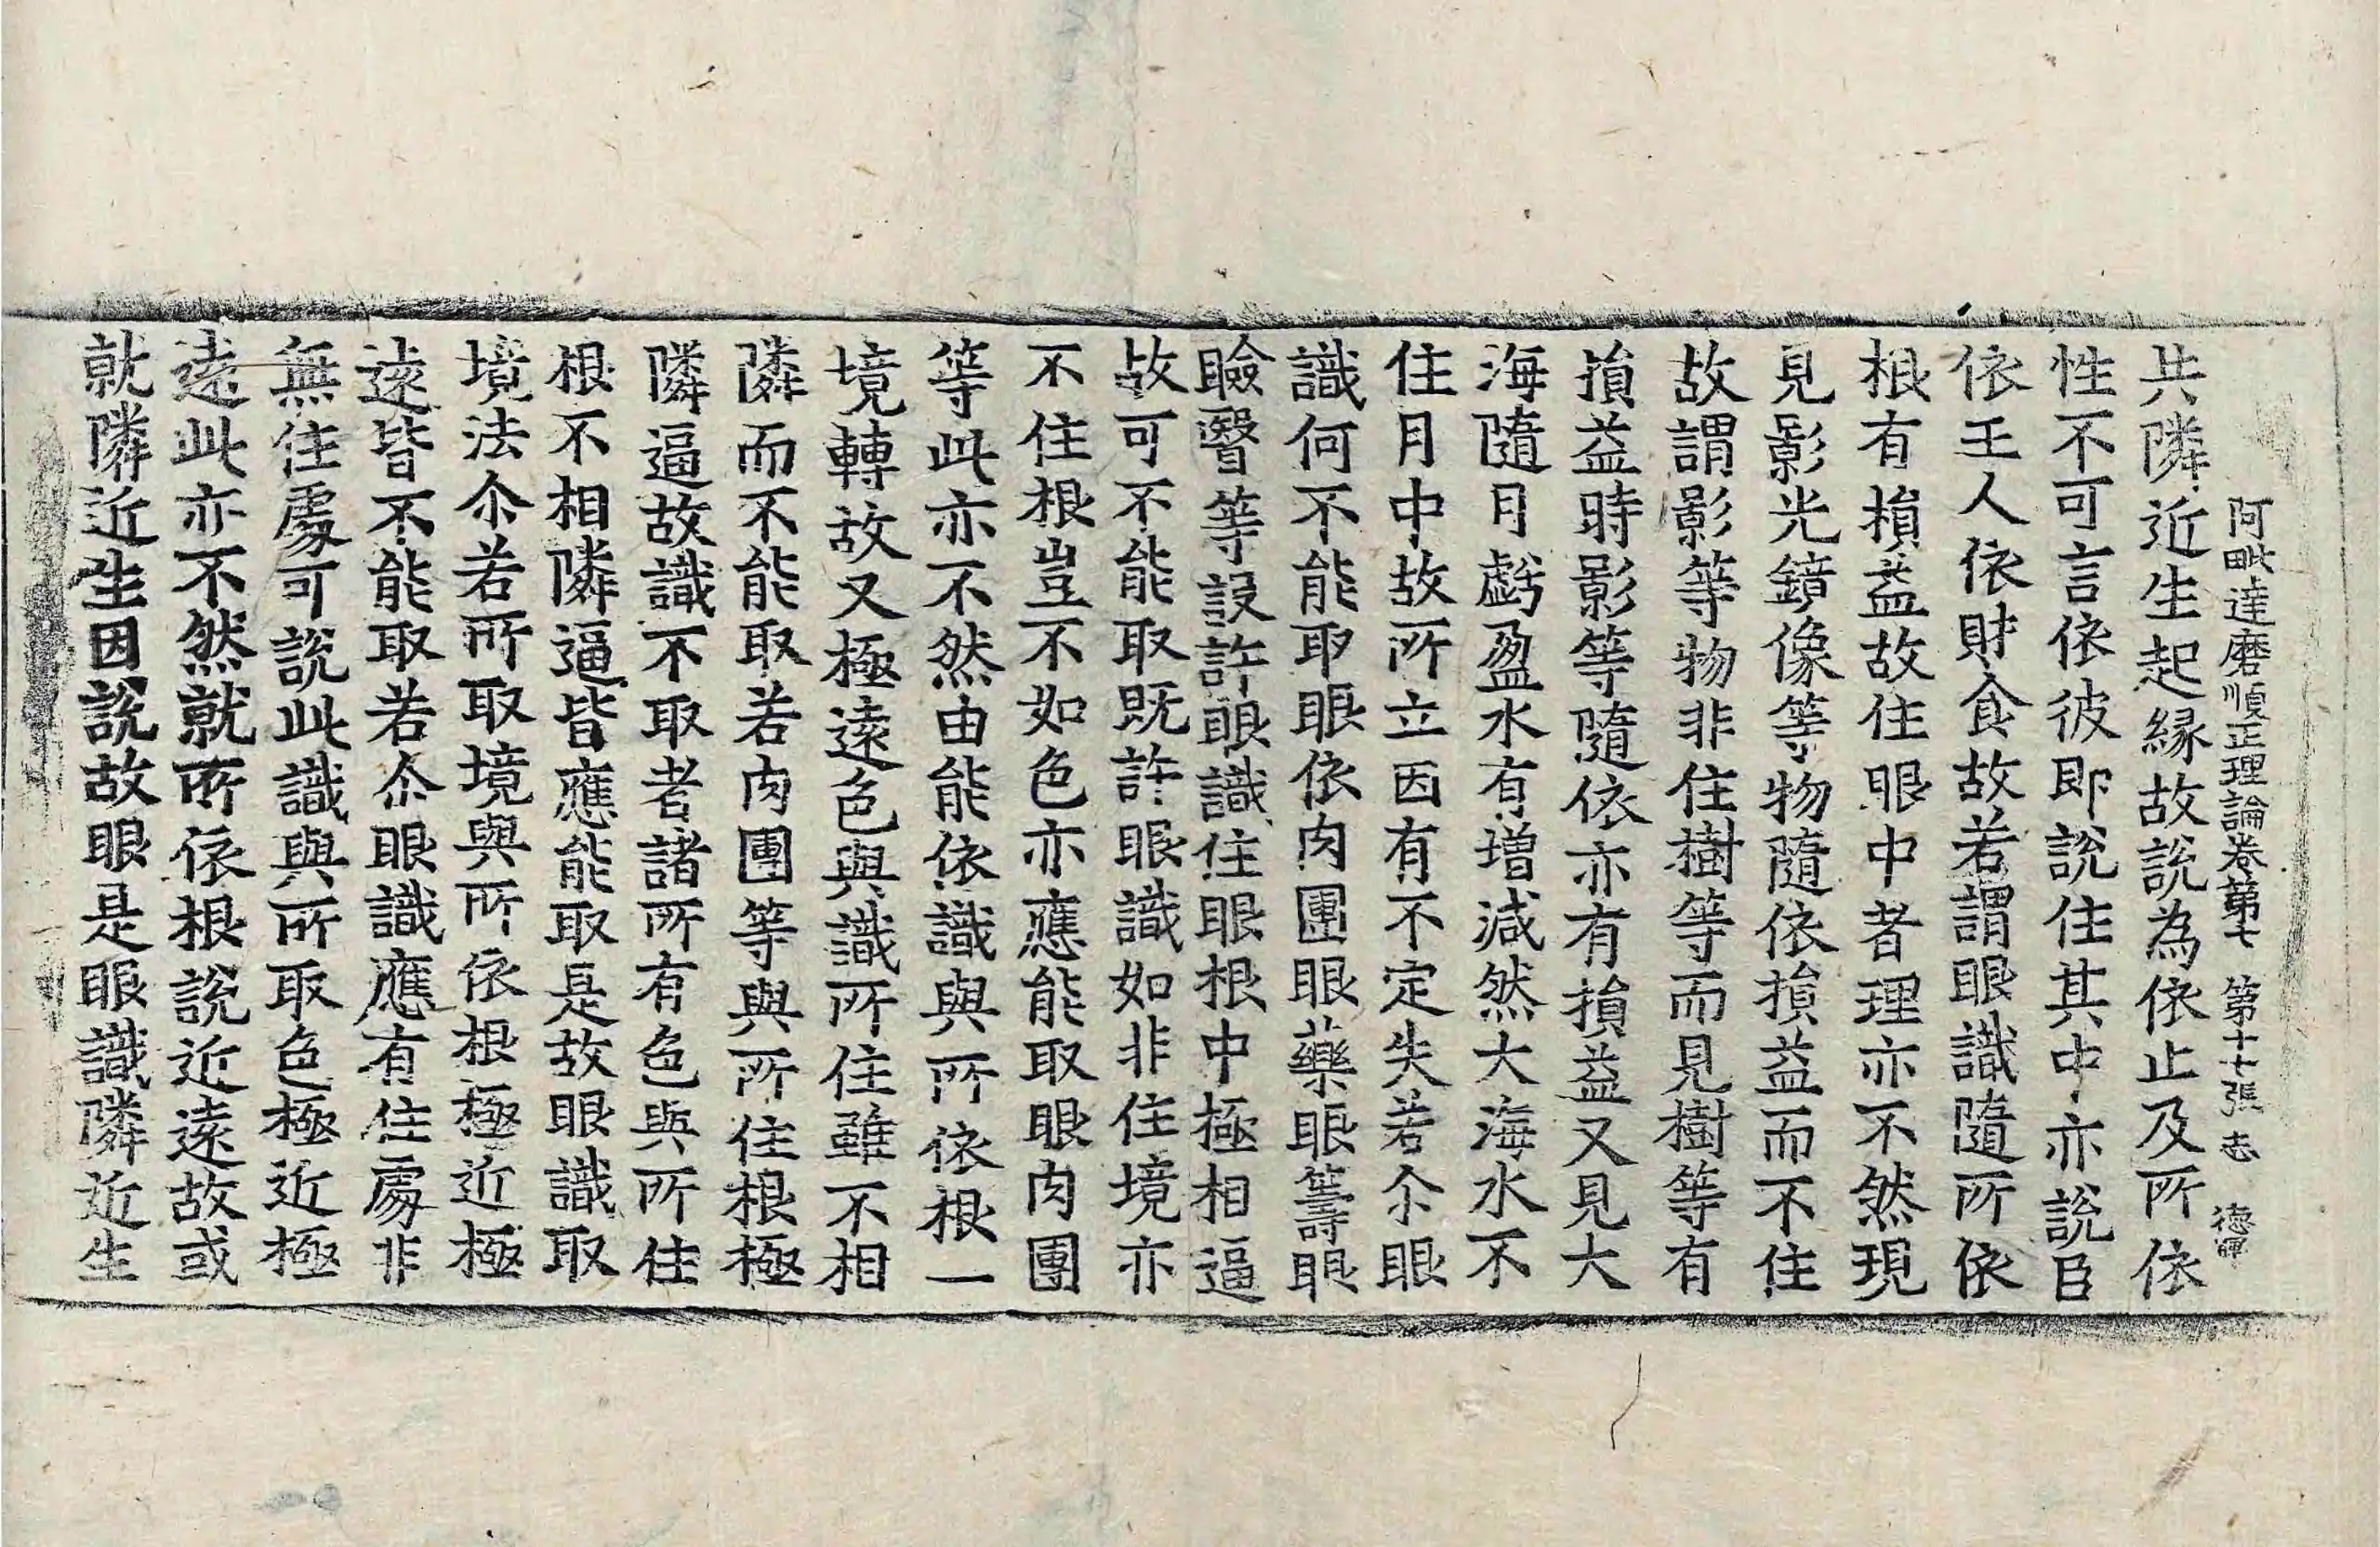 阿毗達磨順正理論卷第七 第十七張 志 德暉
共隣近生起緣故說為依止及所依
性不可言依彼即說住其中亦說臣
依王人依財食故若謂眼識隨所依
根有損益故住眼中者理亦不然現
見影光鏡像等物隨依損益而不住
故謂影等物非住樹等而見樹等有
損益時影等隨依亦有損益又見大
海隨月虧盈水有增減然大海水不
住月中故所立因有不定失若尒眼
識何不能取眼依肉團眼藥眼籌眼
瞼瞖等設許眼識住眼根中極相逼
故可不能取既許眼識如非住境亦
不住根豈不如色亦應能取眼肉團
等此亦不然由能依識與所依根一
境轉故又極遠色與識所住雖不相
隣而不能取若肉團等與所住根極
隣逼故識不取者諸所有色與所住
根不相隣逼皆應能取是故眼識取
境法尒若所取境與所依根極近極
遠皆不能取若尒眼識應有住處非
無住處可說此識與所取色極近極
遠此亦不然就所依根說近遠故或
就隣近生因說故眼是眼識隣近生